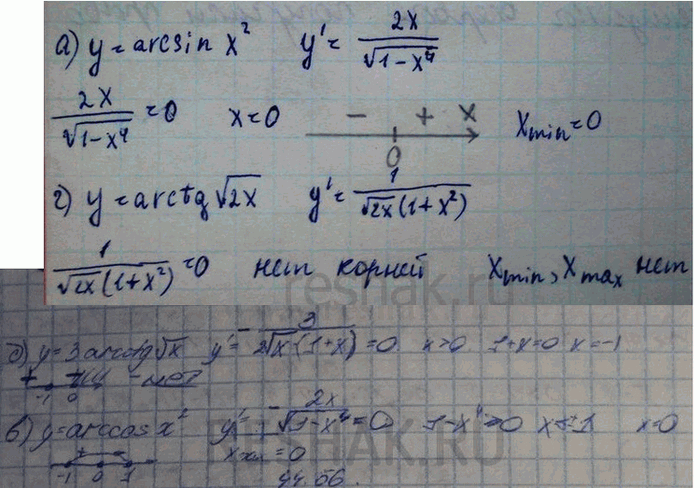 а) y = arcsin x² y' = 2x/√(1-x⁴)
2x/√(1-x⁴) = 0 x=0 - + x 0 Xmin=0
г) y = arctg √2x y' = 1/(√2x(1+x²))
1/(√2x(1+x²)) = 0 нет корней Xmin, Xmax нет
reshak.ru
б) y = 3arcctg√x y' = -3/(2√x(1+x)) = 0 x>0 1+x=0 x=-1
-1 0 - нет
в) y = arccos x² y' = -2x/√(1-x⁴) = 0 1-x⁴>0 x≠±1 x=0
-1 0 1 = 0
RESHAK.RU
44.56.